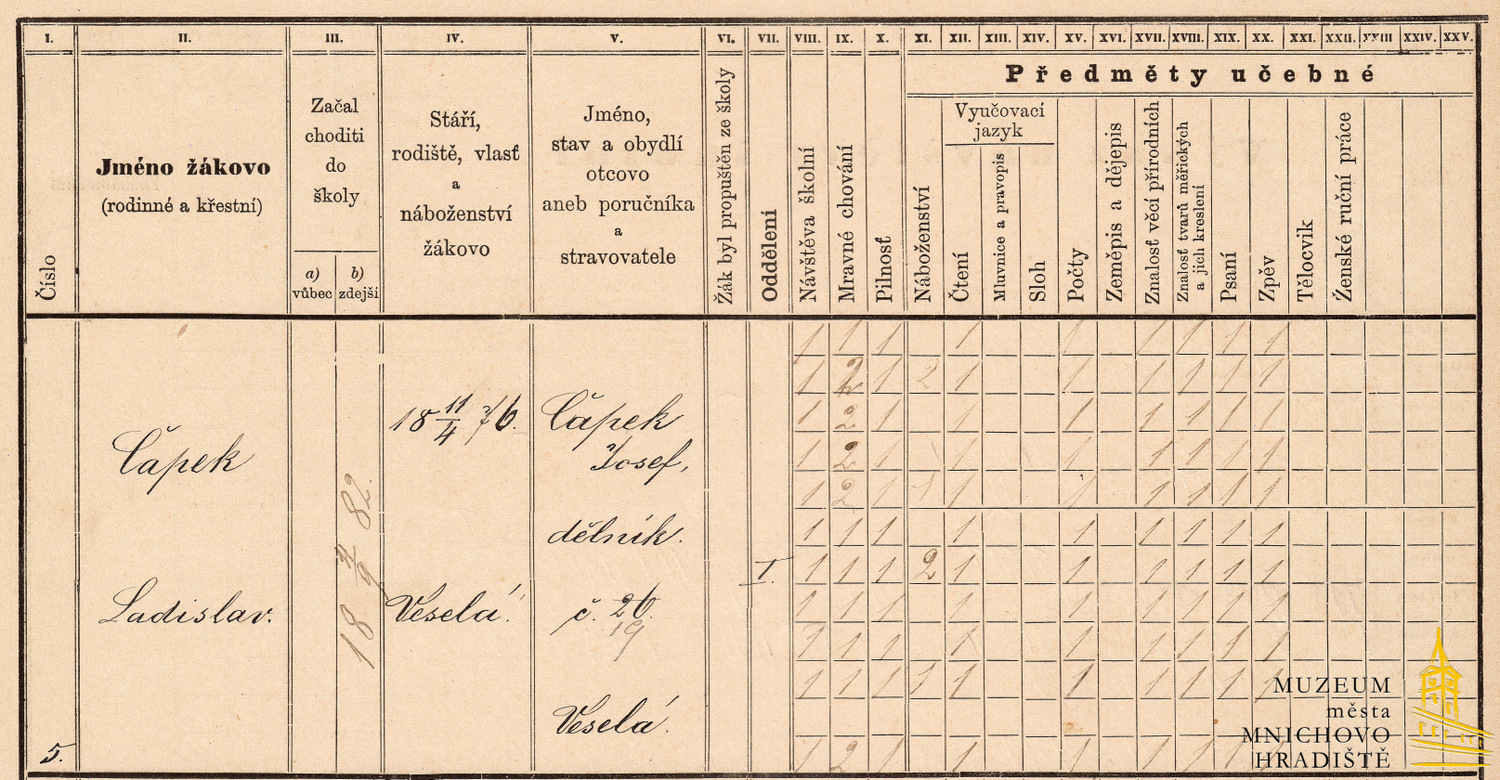 I. II. III. IV. V. VI. VII. VIII. IX. X. XI. XII. XIII. XIV. XV. XVI. XVII. XVIII. XIX. XX. XXI. XXII. XXIII XXIV. XXV.
Předměty učebné
Číslo
Jméno žákovo
(rodinné a křestní)
Začal
choditi
do
školy
a) vůbec
b) zdejší
Stáří,
rodiště, vlasť
a
náboženství
žákovo
Jméno,
stav a obydlí
otcovo
aneb poručníka
a
stravovatele
Žák byl propuštěn ze školy
Oddělení
Návštěva školní
Mravné chování
Pilnosť
Náboženství
Vyučovací
jazyk
Čtení
Mluvnice a pravopis
Sloh
Počty
Zeměpis a dějepis
Znalosť věcí přírodních
Znalosť tvarů měřických
a jich kreslení
Psaní
Zpěv
Tělocvik
Ženské ruční práce
1 1 1 1 1 1 1 1 1
1 2 1 2 1 1 1 1 1 1
18 11/4 76. Čapek
1 2 1 1 1 1 1 1 1
Čapek Josef,
1 2 1 1 1 1 1 1 1
18 4/9 82.
1 2 1 1 1 1 1 1 1 1
dělník.
1 1 1 1 1 1 1 1 1
I. 1 1 1 2 1 1 1 1 1 1
Ladislav. Veselá. č. 26.
19
1 1 1 1 1 1 1 1 1
1 1 1 1 1 1 1 1 1
1 1 1 1 1 1 1 1 1 1
Veselá.
5. 1 2 1 1 1 1 1 1 1
MUZEUM
města
MNICHOVO
HRADIŠTĚ